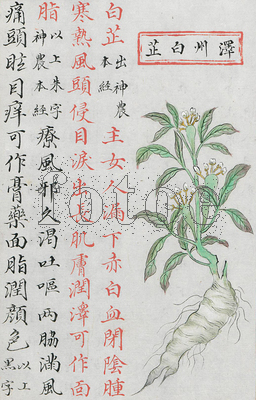 澤州白芷
白芷出神農本經主女人漏下赤白血閉陰腫
寒熱風頭侵目淚出長肌膚潤澤可作面
脂以上朱字神農本經療風邪久渴吐嘔兩脇滿風
痛頭眩目痒可作膏藥面脂潤顏色以上黑字
fotoe